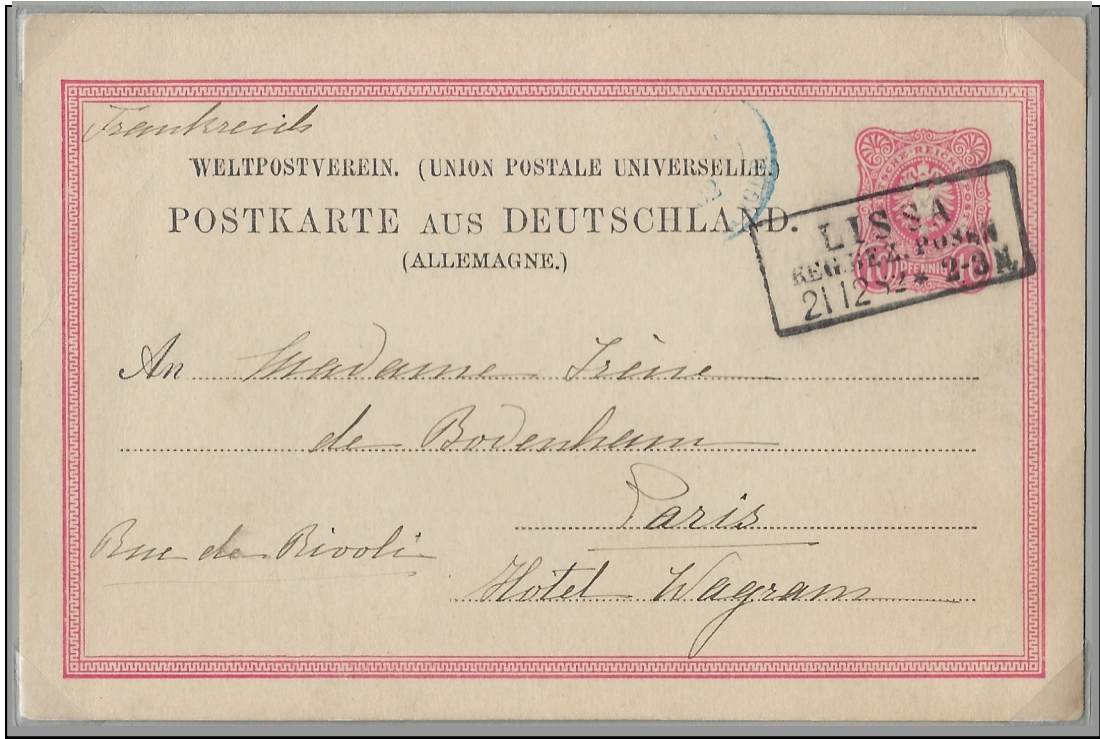 Frankreich
WELTPOSTVEREIN. (UNION POSTALE UNIVERSELLE.)
POSTKARTE AUS DEUTSCHLAND.
(ALLEMAGNE.)
REICHS POST
10 PFENNIG 10
LISSA
REG.BEZ. POSEN
21 12 82 * 2-3 N.
An Madame Irène
de Bodenham
Paris
Rue de Rivoli
Hôtel Wagram